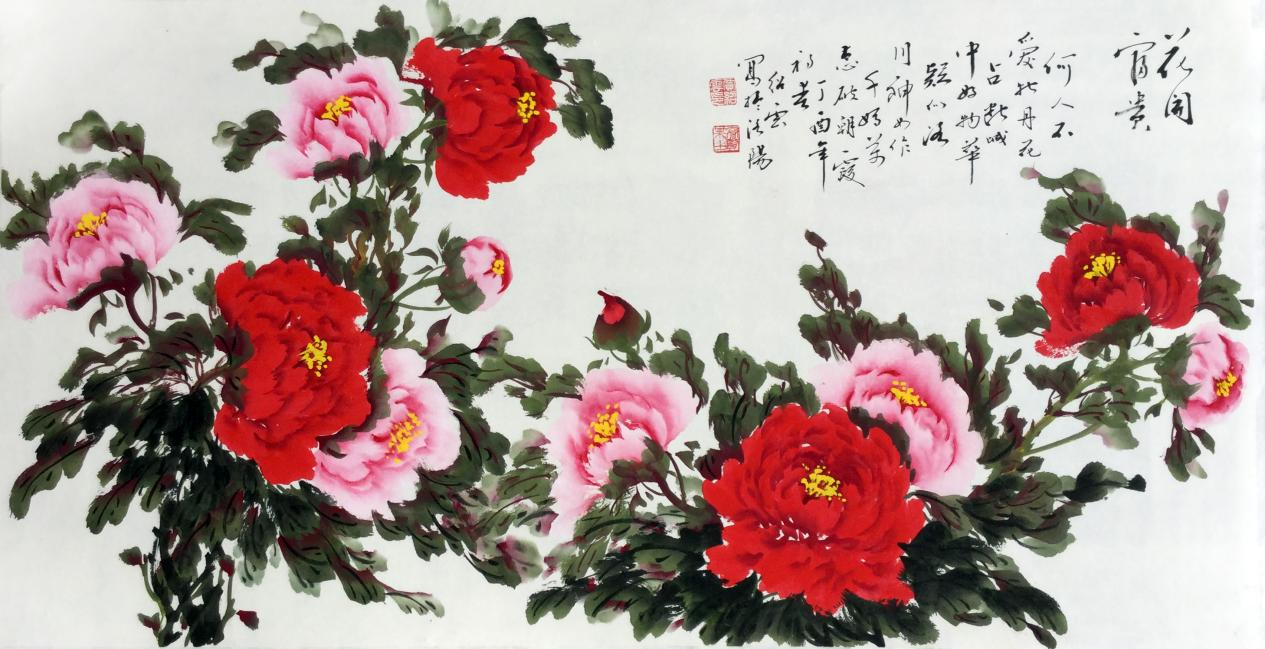 花開
富貴
何人不
愛牡丹花
占断城
中好物華
疑似洛
川神女作
千嬌萬
態破朝霞
丁酉年
紹雲
寫於洛陽